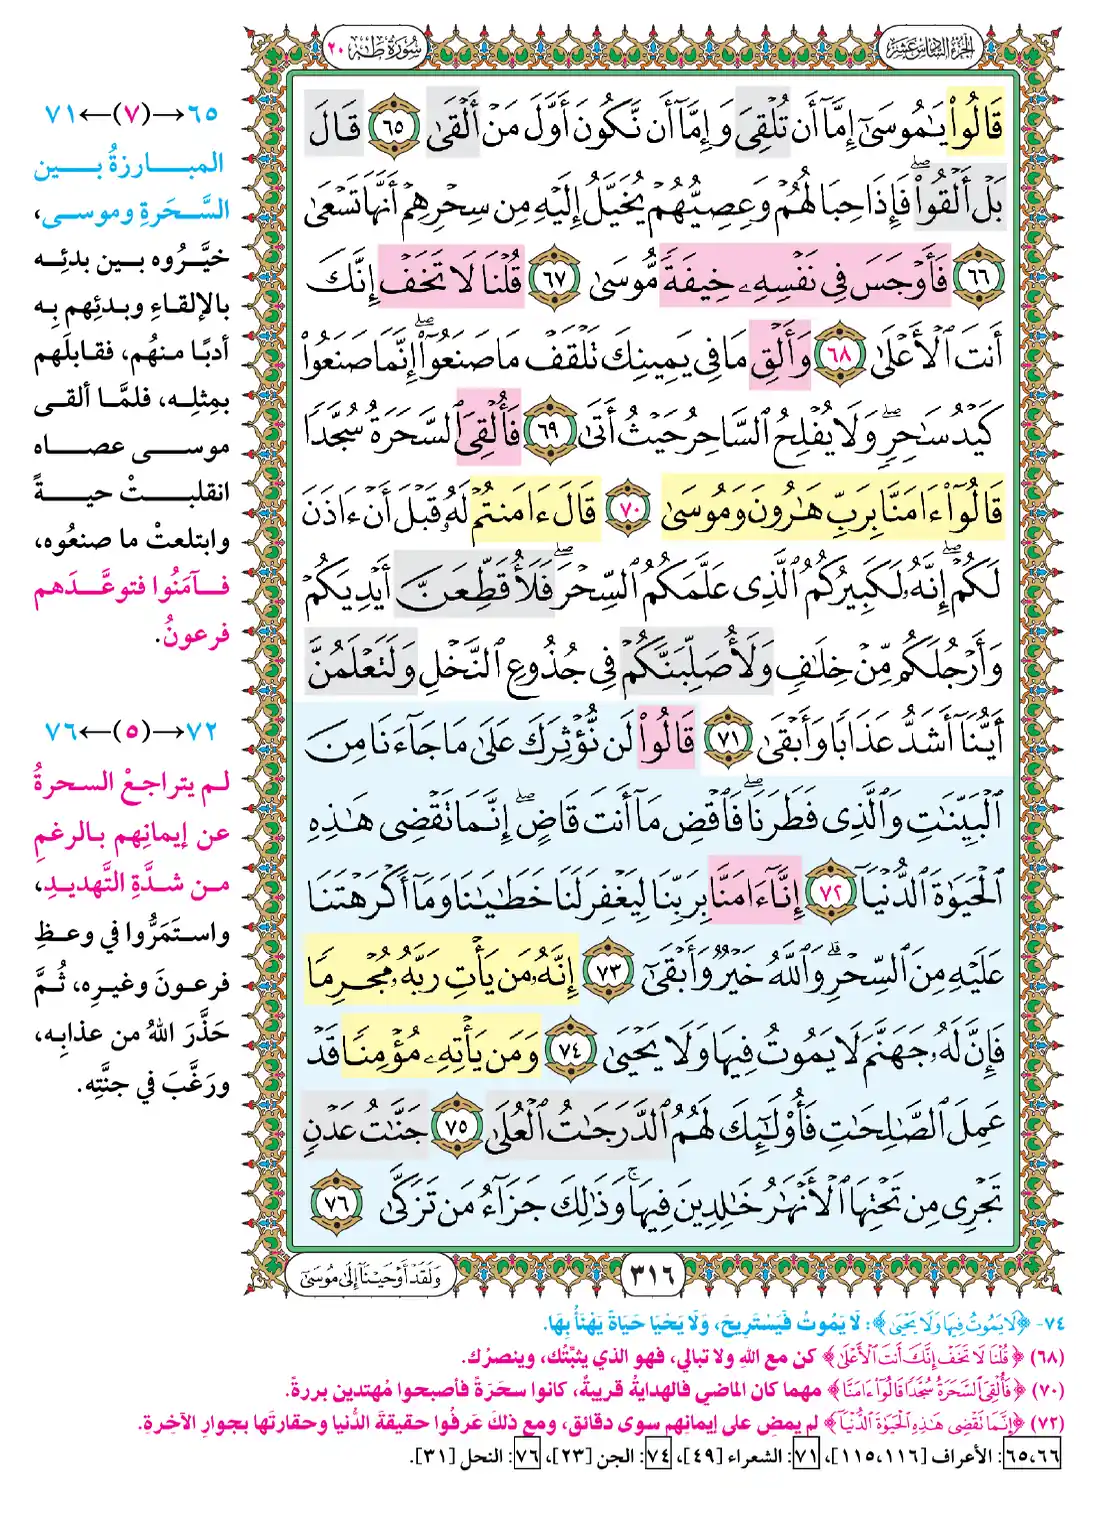 الجزء السادس عشر
سُورَةُ طه ٢٠
قَالُوا۟ يَٰمُوسَىٰٓ إِمَّآ أَن تُلْقِىَ وَإِمَّآ أَن نَّكُونَ أَوَّلَ مَنْ أَلْقَىٰ ٦٥ قَالَ
بَلْ أَلْقُوا۟ ۖ فَإِذَا حِبَالُهُمْ وَعِصِيُّهُمْ يُخَيَّلُ إِلَيْهِ مِن سِحْرِهِمْ أَنَّهَا تَسْعَىٰ
٦٦ فَأَوْجَسَ فِى نَفْسِهِۦ خِيفَةً مُّوسَىٰ ٦٧ قُلْنَا لَا تَخَفْ إِنَّكَ
أَنتَ ٱلْأَعْلَىٰ ٦٨ وَأَلْقِ مَا فِى يَمِينِكَ تَلْقَفْ مَا صَنَعُوٓا۟ ۖ إِنَّمَا صَنَعُوا۟
كَيْدُ سَٰحِرٍ ۖ وَلَا يُفْلِحُ ٱلسَّاحِرُ حَيْثُ أَتَىٰ ٦٩ فَأُلْقِىَ ٱلسَّحَرَةُ سُجَّدًا
قَالُوٓا۟ ءَامَنَّا بِرَبِّ هَٰرُونَ وَمُوسَىٰ ٧٠ قَالَ ءَامَنتُمْ لَهُۥ قَبْلَ أَنْ ءَاذَنَ
لَكُمْ ۖ إِنَّهُۥ لَكَبِيرُكُمُ ٱلَّذِى عَلَّمَكُمُ ٱلسِّحْرَ ۖ فَلَأُقَطِّعَنَّ أَيْدِيَكُمْ
وَأَرْجُلَكُم مِّنْ خِلَٰفٍ وَلَأُصَلِّبَنَّكُمْ فِى جُذُوعِ ٱلنَّخْلِ وَلَتَعْلَمُنَّ
أَيُّنَآ أَشَدُّ عَذَابًا وَأَبْقَىٰ ٧١ قَالُوا۟ لَن نُّؤْثِرَكَ عَلَىٰ مَا جَآءَنَا مِنَ
ٱلْبَيِّنَٰتِ وَٱلَّذِى فَطَرَنَا ۖ فَٱقْضِ مَآ أَنتَ قَاضٍ ۖ إِنَّمَا تَقْضِى هَٰذِهِ
ٱلْحَيَوٰةَ ٱلدُّنْيَآ ٧٢ إِنَّآ ءَامَنَّا بِرَبِّنَا لِيَغْفِرَ لَنَا خَطَٰيَٰنَا وَمَآ أَكْرَهْتَنَا
عَلَيْهِ مِنَ ٱلسِّحْرِ ۗ وَٱللَّهُ خَيْرٌ وَأَبْقَىٰٓ ٧٣ إِنَّهُۥ مَن يَأْتِ رَبَّهُۥ مُجْرِمًا
فَإِنَّ لَهُۥ جَهَنَّمَ لَا يَمُوتُ فِيهَا وَلَا يَحْيَىٰ ٧٤ وَمَن يَأْتِهِۦ مُؤْمِنًا قَدْ
عَمِلَ ٱلصَّٰلِحَٰتِ فَأُو۟لَٰٓئِكَ لَهُمُ ٱلدَّرَجَٰتُ ٱلْعُلَىٰ ٧٥ جَنَّٰتُ عَدْنٍ
تَجْرِى مِن تَحْتِهَا ٱلْأَنْهَٰرُ خَٰلِدِينَ فِيهَا ۚ وَذَٰلِكَ جَزَآءُ مَن تَزَكَّىٰ ٧٦
٣١٦
وَلَقَدْ أَوْحَيْنَآ إِلَىٰ مُوسَىٰٓ
٦٥→(٧)←٧١
المبارزةُ بين
السَّحَرةِ وموسى،
خيَّرُوه بين بدئِه
بالإلقاءِ وبدئِهم بِه
أدبًا منهُم، فقابلَهم
بمِثلِه، فلمَّا ألقى
موسى عصاه
انقلبتْ حيةً
وابتلعتْ ما صنعُوه،
فآمَنُوا فتوعَّدَهم
فرعونُ.
٧٢→(٥)←٧٦
لم يتراجعْ السحرةُ
عن إيمانِهم بالرغمِ
من شدَّةِ التَّهديدِ،
واستمَرُّوا في وعظِ
فرعونَ وغيرِه، ثُمَّ
حَذَّرَ اللهُ من عذابِه،
ورَغَّبَ في جنَّتِه.
٧٤- ﴿لَا يَمُوتُ فِيهَا وَلَا يَحْيَىٰ﴾: لَا يَمُوتُ فَيَسْتَرِيحَ، وَلَا يَحْيَا حَيَاةً يَهْنَأُ بِهَا.
(٦٨) ﴿قُلْنَا لَا تَخَفْ إِنَّكَ أَنتَ ٱلْأَعْلَىٰ﴾ كن مع اللهِ ولا تبالي، فهو الذي يثبِّتُك، وينصرُك.
(٧٠) ﴿فَأُلْقِىَ ٱلسَّحَرَةُ سُجَّدًا قَالُوٓا۟ ءَامَنَّا﴾ مهما كان الماضي فالهدايةُ قريبةٌ، كانوا سحَرَةً فأصبحوا مُهتدين بررةً.
(٧٢) ﴿إِنَّمَا تَقْضِى هَٰذِهِ ٱلْحَيَوٰةَ ٱلدُّنْيَآ﴾ لم يمضِ على إيمانِهم سوى دقائق، ومع ذلكَ عَرفُوا حقيقةَ الدُّنيا وحقارتَها بجوارِ الآخِرةِ.
٦٥،٦٦: الأعراف [١١٥،١١٦]، ٧١: الشعراء [٤٩]، ٧٤: الجن [٢٣]، ٧٦: النحل [٣١].